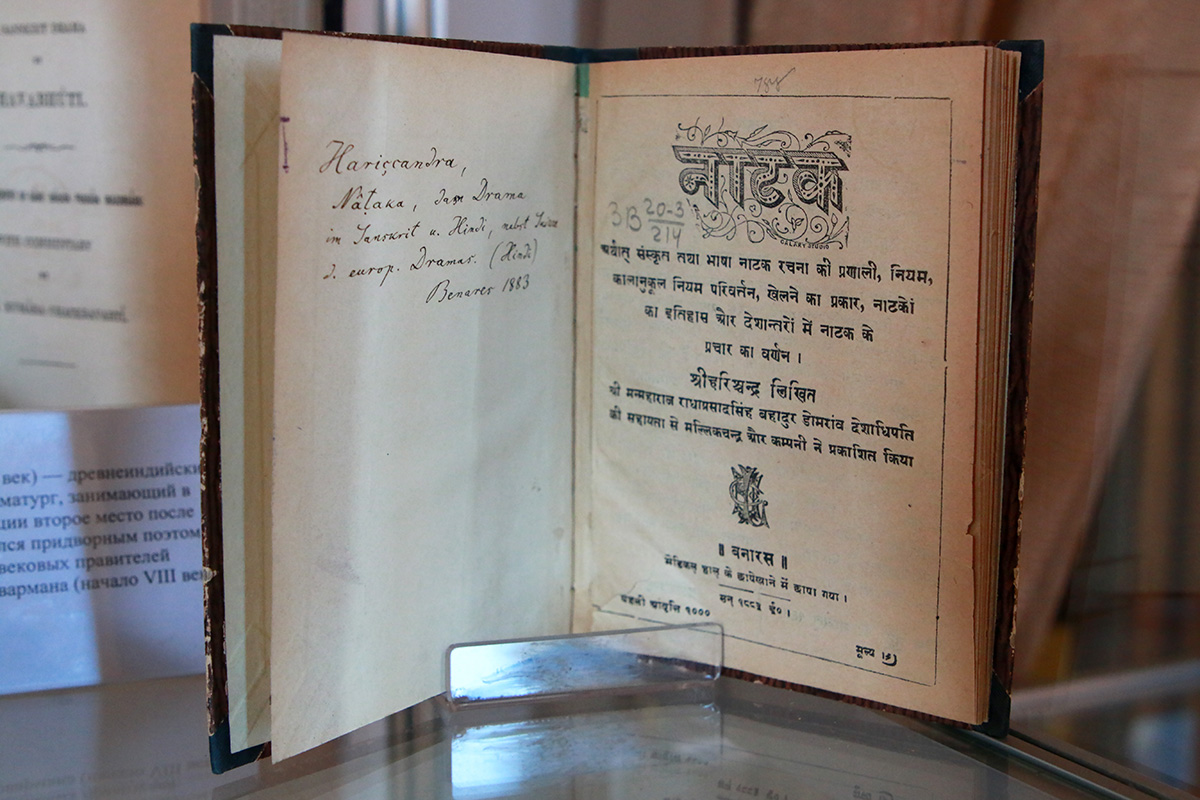 SANSKRIT DRAMA
HAVABHÚTI.
WITH COMMENTARY
век) — древнеиндийски
матург, занимающий в
ции второе место после
лся придворным поэтом
вековых правителей
вармана (начало VIII ве
Harisçandra,
Nâṭaka, das Drama
im Sanskrit u. Hindi, nebst
d. europ. Dramas. (Hindi)
Benares 1883
नाटक
GALAXY STUDIO
3B 20-3
214
अर्थात् संस्कृत तथा भाषा नाटक रचना की प्रणाली, नियम,
कालानुकूल नियम परिवर्तन, खेलने का प्रकार, नाटकों
का इतिहास और देशान्तरों में नाटक के
प्रचार का वर्णन ।
श्रीहरिश्चन्द्र लिखित
श्री मन्महाराज राधाप्रसादसिंह बहादुर डोमरांव देशाधिपति
की सहायता से मल्लिकचन्द्र और कम्पनी ने प्रकाशित किया
॥ बनारस ॥
मेडिकल् हाल् के छापेखाने में छापा गया ।
सन् १८८३ ई० ।
पहली आवृत्ति १०००
मूल्य